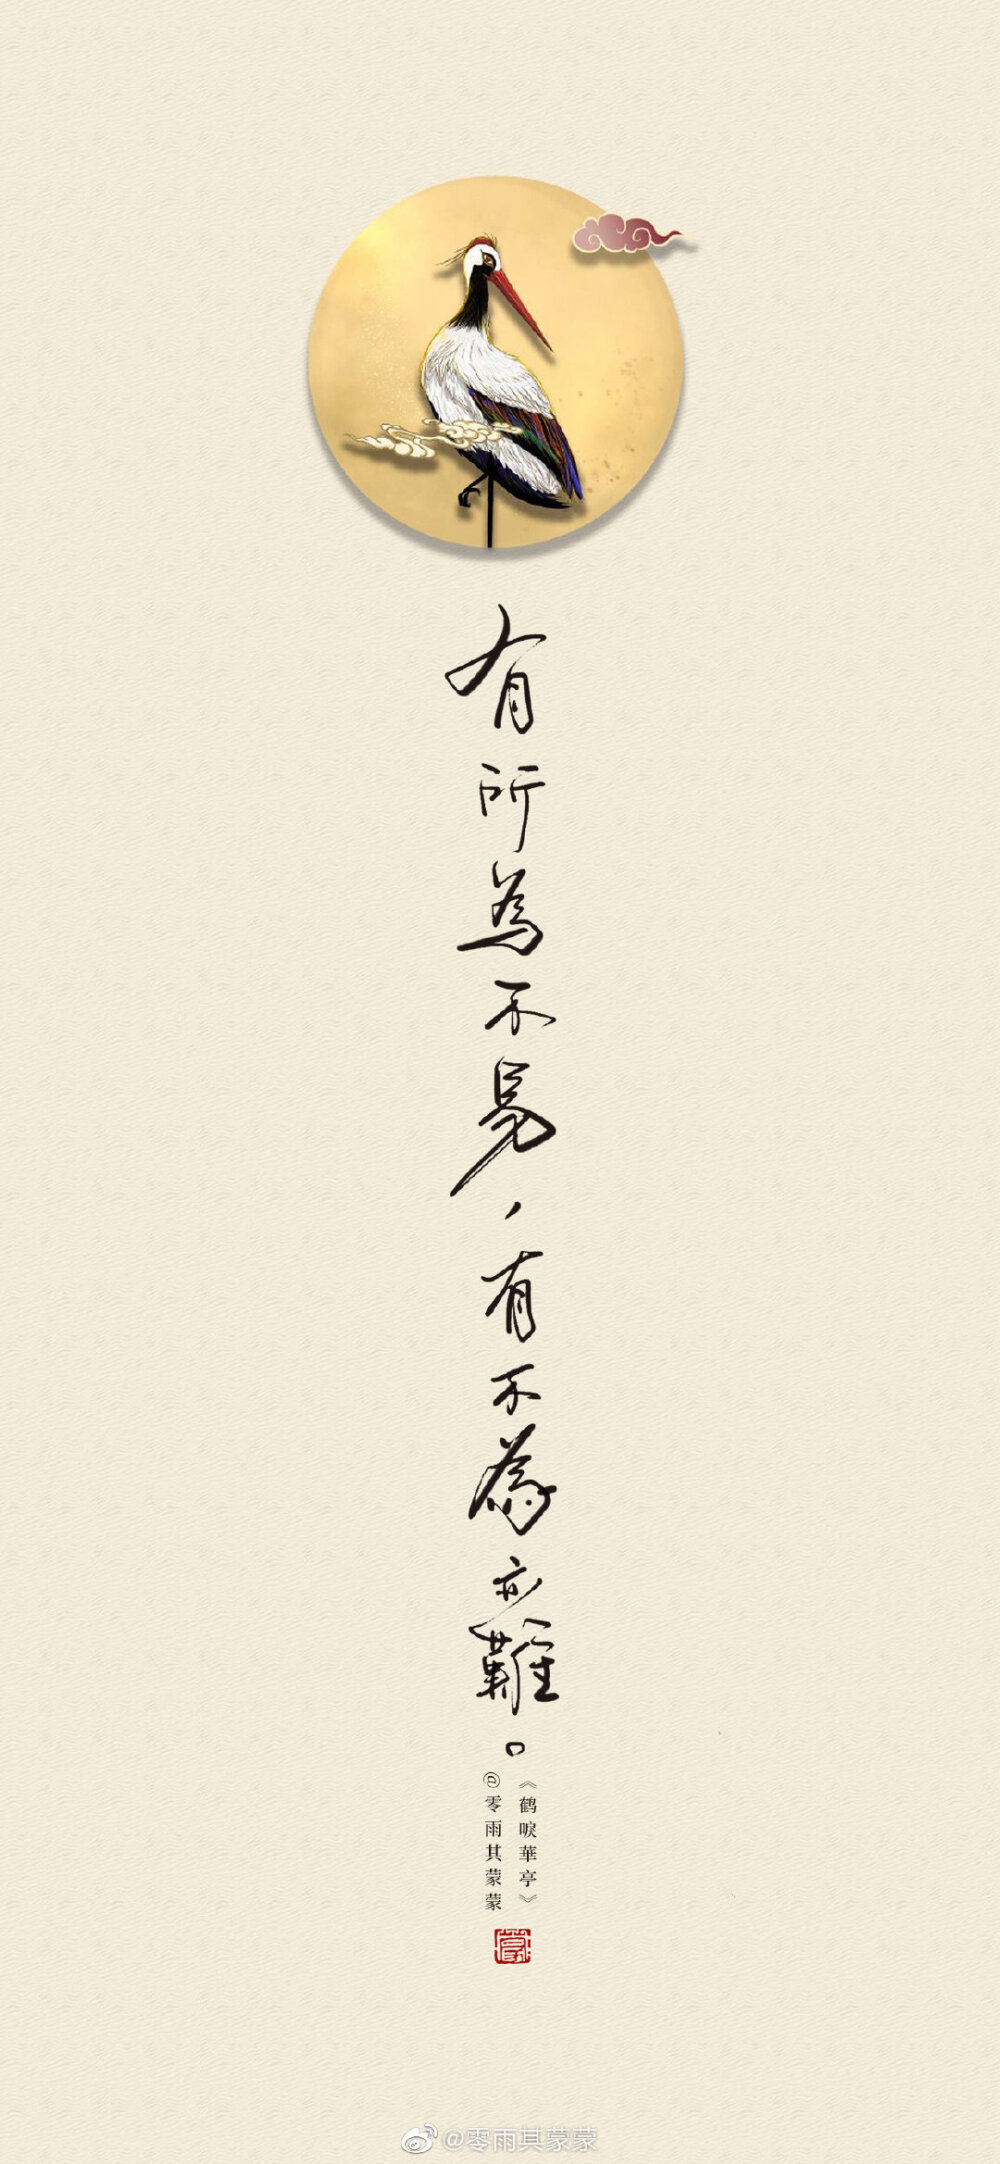 有所為不易，有不為亦難。
《鹤唳華亭》
@零雨其蒙蒙
@零雨其蒙蒙